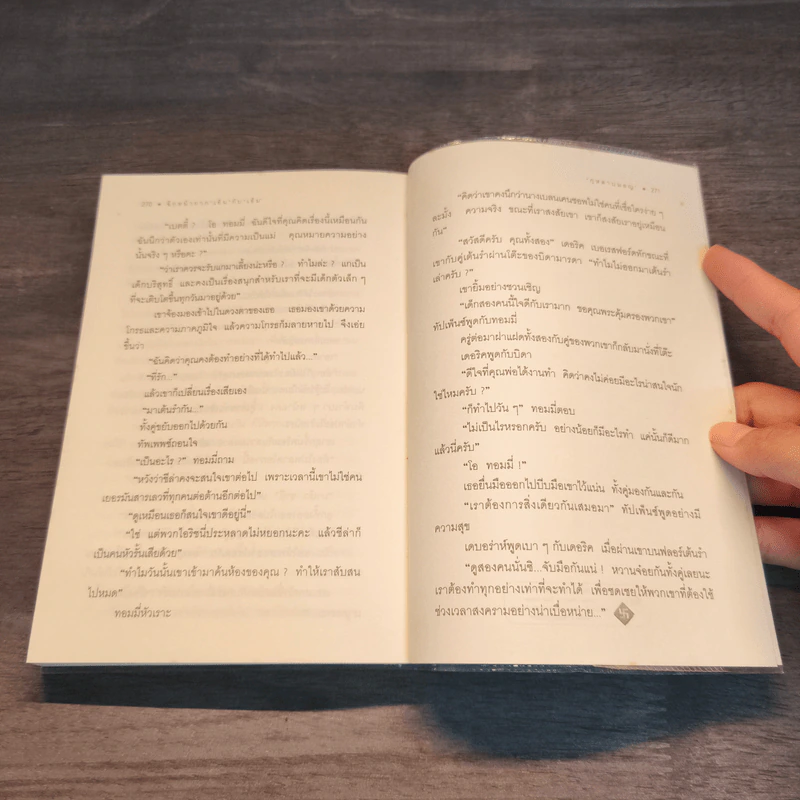 "เบตตี้ ? โอ ทอมมี่ ฉันดีใจที่คุณคิดเรื่องนี้เหมือนกัน
ฉันนึกว่าตัวเองเท่านั้นที่มีความเป็นแม่ คุณหมายความอย่าง
นั้นจริง ๆ หรือ ?"
"ว่าเราควรจะรับแกมาเลี้ยงน่ะหรือ ? ทำไมล่ะ ? แกเป็น
เด็กบริสุทธิ์ และคงเป็นเรื่องสนุกสำหรับเราที่จะมีเด็กตัวเล็ก ๆ
ที่จะเติบโตขึ้นทุกวันมาอยู่ด้วย"
เขาจ้องมองเข้าไปในดวงตาของเธอ เธอมองเขาด้วยความ
โกรธและความภาคภูมิใจ แล้วความโกรธก็มลายหายไป จึงเอ่ย
ขึ้นว่า
"ฉันคิดว่าคุณคงต้องทำอย่างที่ได้ทำไปแล้ว..."
"ที่รัก..."
แล้วเขาก็เปลี่ยนเรื่องเสียเอง
"มาเต้นรำกัน..."
ทั้งคู่ขยับออกไปด้วยกัน
ทัพเพพซ์ถอนใจ
"เป็นอะไร ?" ทอมมี่ถาม
"หวังว่าชีล่าคงจะสนใจเขาต่อไป เพราะเวลานี้เขาไม่ใช่คน
เยอรมันสารเลวที่ทุกคนต่อต้านอีกต่อไป"
"ดูเหมือนเธอก็สนใจเขาดีอยู่นี่"
"ใช่ แต่พวกไอริชนี่ประหลาดไม่หยอกนะคะ แล้วชีล่าก็
เป็นคนหัวรั้นเสียด้วย"
"ทำไมวันนั้นเขาเข้ามาค้นห้องของคุณ ? ทำให้เราสับสน
ไปหมด"
ทอมมี่หัวเราะ
"คิดว่าเขาคงนึกว่านางเบลนเคนซอพไม่ใช่คนที่เชื่อใครง่าย ๆ
ละมั้ง ความจริง ขณะที่เราสงสัยเขา เขาก็สงสัยเราอยู่เหมือน
กัน"
"สวัสดีครับ คุณทั้งสอง" เดอริค เบอเรสฟอร์ดทักขณะที่
เขากับคู่เต้นรำผ่านโต๊ะของบิดามารดา "ทำไมไม่ออกมาเต้นรำ
เล่าครับ ?"
เขายิ้มอย่างชวนเชิญ
"เด็กสองคนนี้ใจดีกับเรามาก ขอคุณพระคุ้มครองพวกเขา"
ทัปเพ็นซ์พูดกับทอมมี่
ครู่ต่อมาฝาแฝดทั้งสองกับคู่ของพวกเขาก็กลับมานั่งที่โต๊ะ
เดอริคพูดกับบิดา
"ดีใจที่คุณพ่อได้งานทำ คิดว่าคงไม่ค่อยมีอะไรน่าสนใจนัก
ใช่ไหมครับ ?"
"ก็ทำไปวัน ๆ" ทอมมี่ตอบ
"ไม่เป็นไรหรอกครับ อย่างน้อยก็มีอะไรทำ แค่นั้นก็ดีมาก
แล้วนี่ครับ"
"โอ ทอมมี่ !"
เธอยื่นมือออกไปบีบมือเขาไว้แน่น ทั้งคู่มองกันและกัน
"เราต้องการสิ่งเดียวกันเสมอมา" ทัปเพ็นซ์พูดอย่างมี
ความสุข
เดบอร่าห์พูดเบา ๆ กับเดอริค เมื่อผ่านเขาบนฟลอร์เต้นรำ
"ดูสองคนนั่นซิ...จับมือกันแน่ ! หวานจ๋อยกันทั้งคู่เลยนะ
เราต้องทำทุกอย่างเท่าที่จะทำได้ เพื่อชดเชยให้พวกเขาที่ต้องใช้
ช่วงเวลาสงครามอย่างน่าเบื่อหน่าย..."